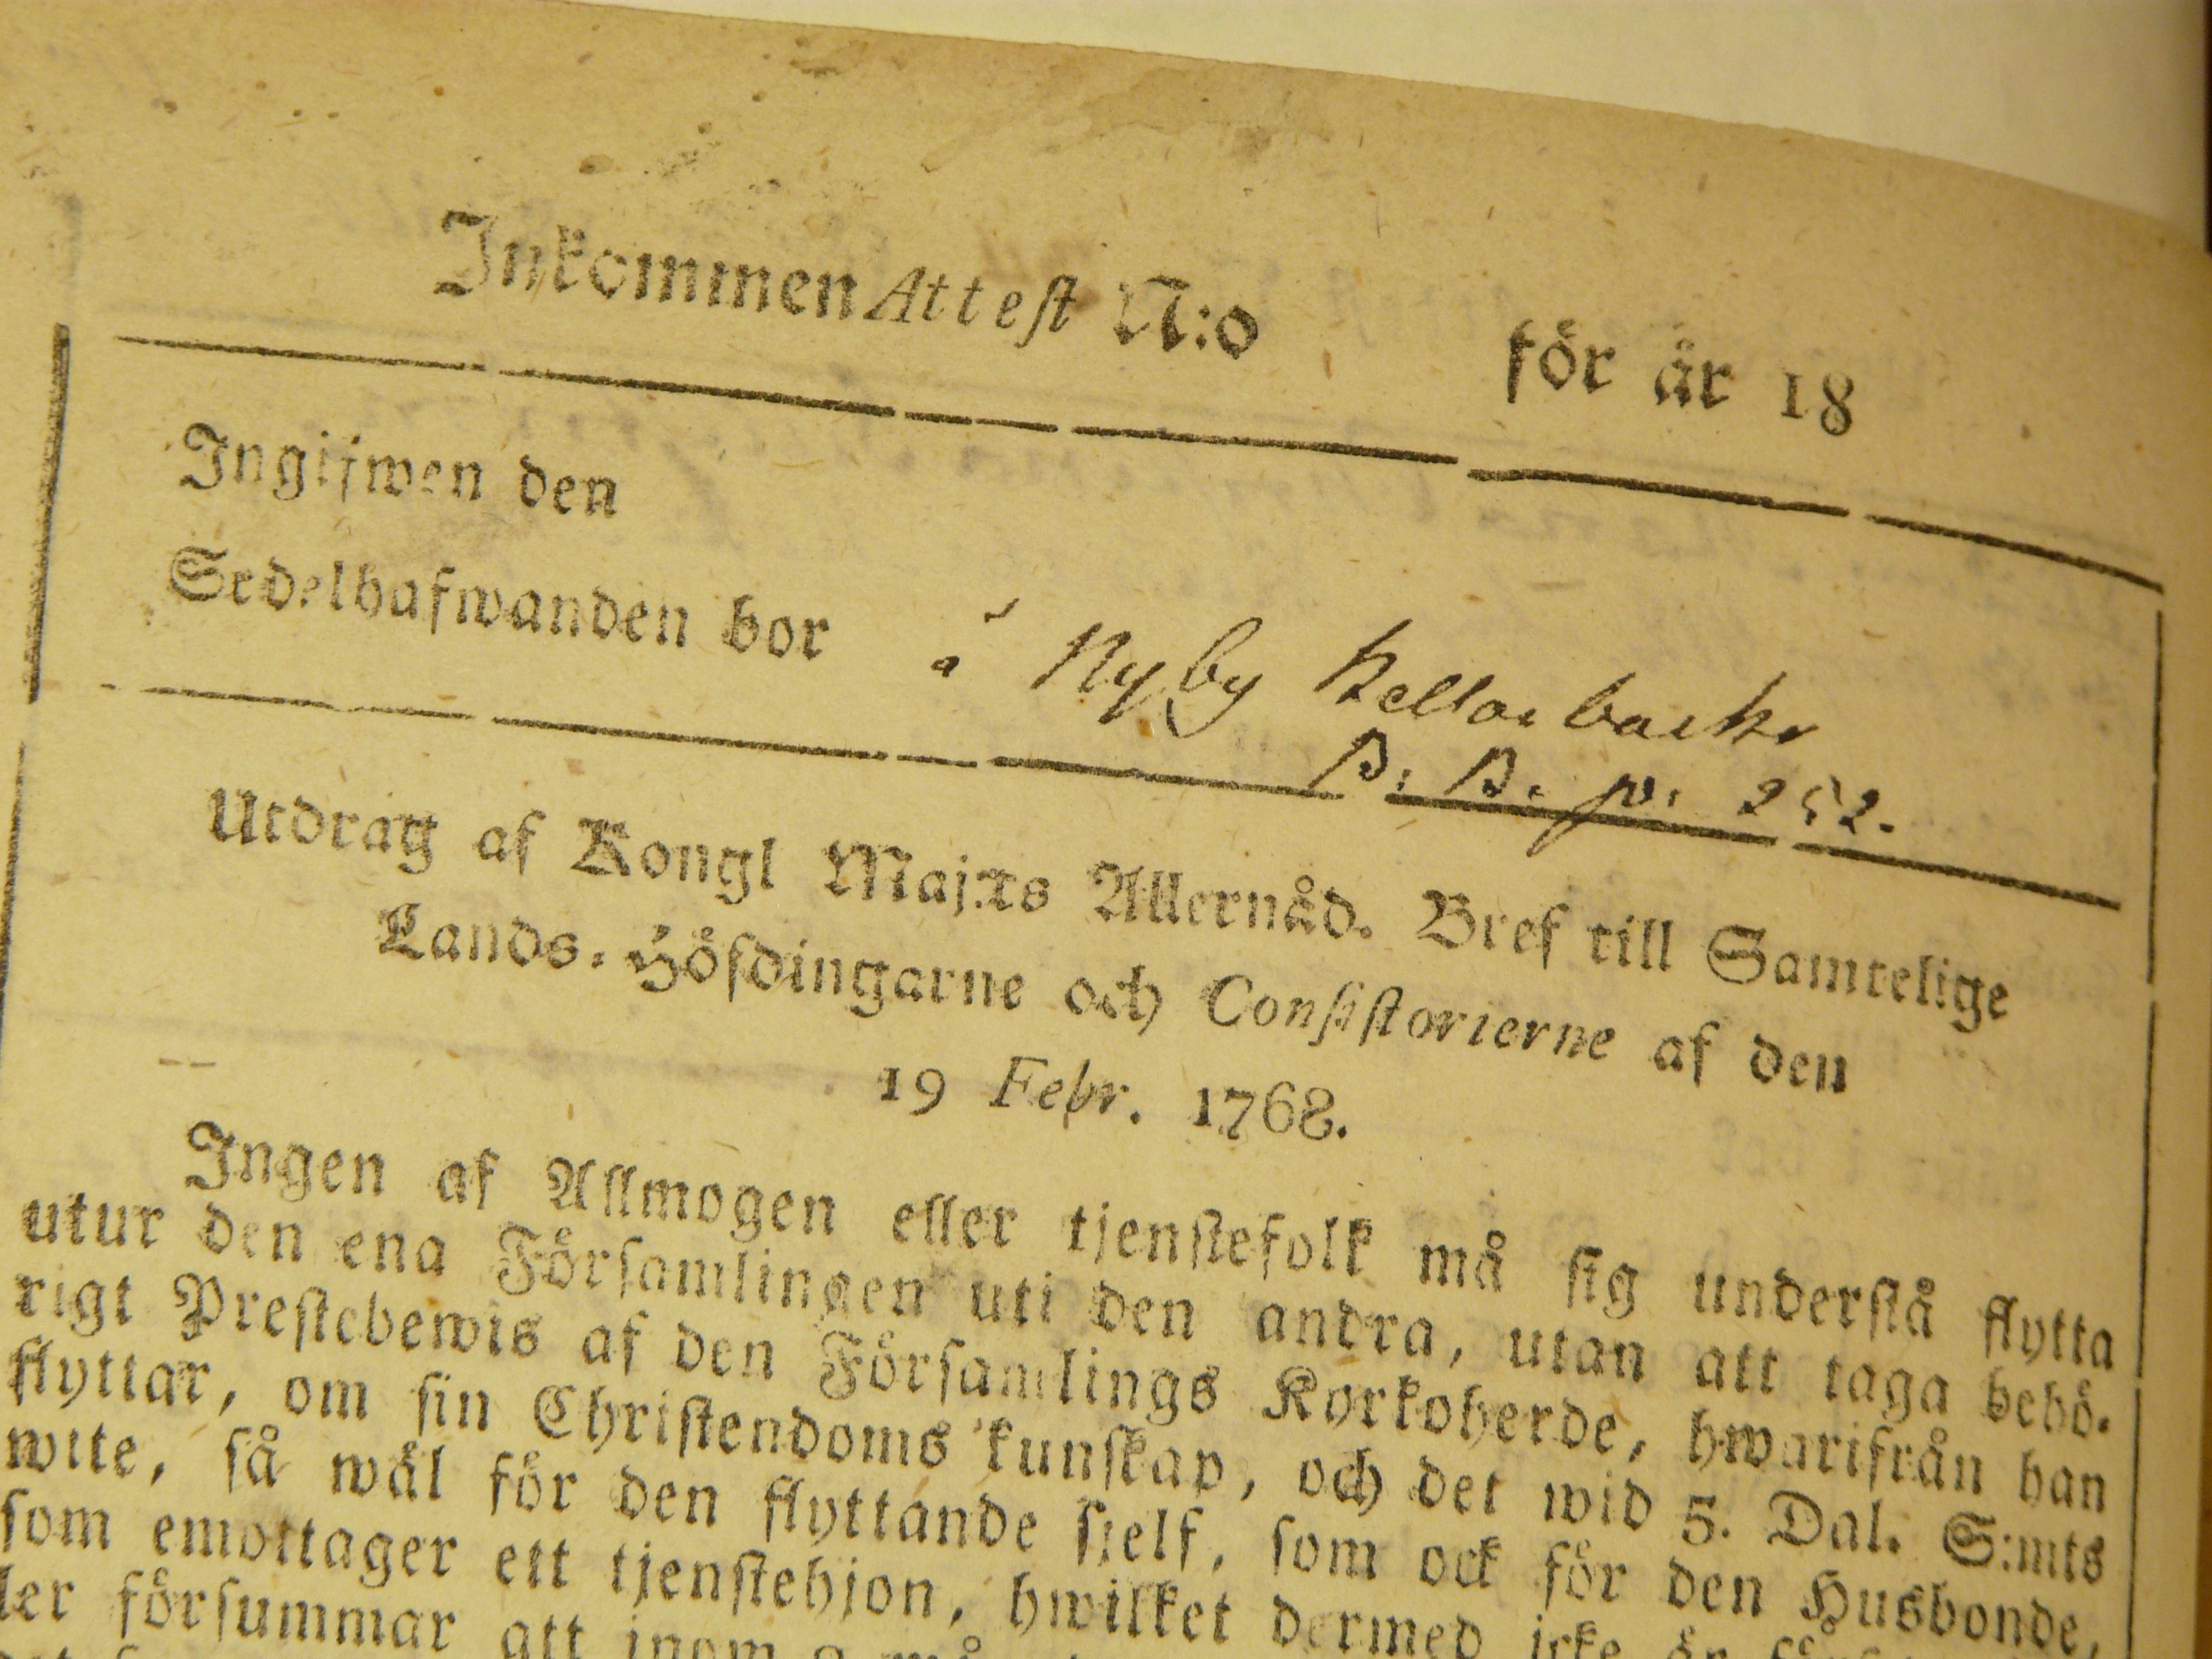 Inkommen Attest N:o för år 18
Ingifwen den
Sedelhafwanden bor å Nyby
B. B. p. 252.
Utdrag af Kongl Maj:ts Allernåd. Bref till Samtelige
Lands-Höfdingarne och Consistorierne af den
19 Febr. 1768.
Ingen af Allmogen eller tjenstefolk må sig understå flytta
utur den ena Församlingen uti den andra, utan att taga behö-
rigt Prestebewis af den Församlings Kyrkoherde, hwarifrån han
flyttar, om sin Christendoms kunskap, och det wid 5. Dal. S:mts
wite, så wäl för den flyttande sjelf, som ock för den Husbonde,
som emottager ett tjenstehjon, hwilket dermed icke är
ler försummar att inom 2